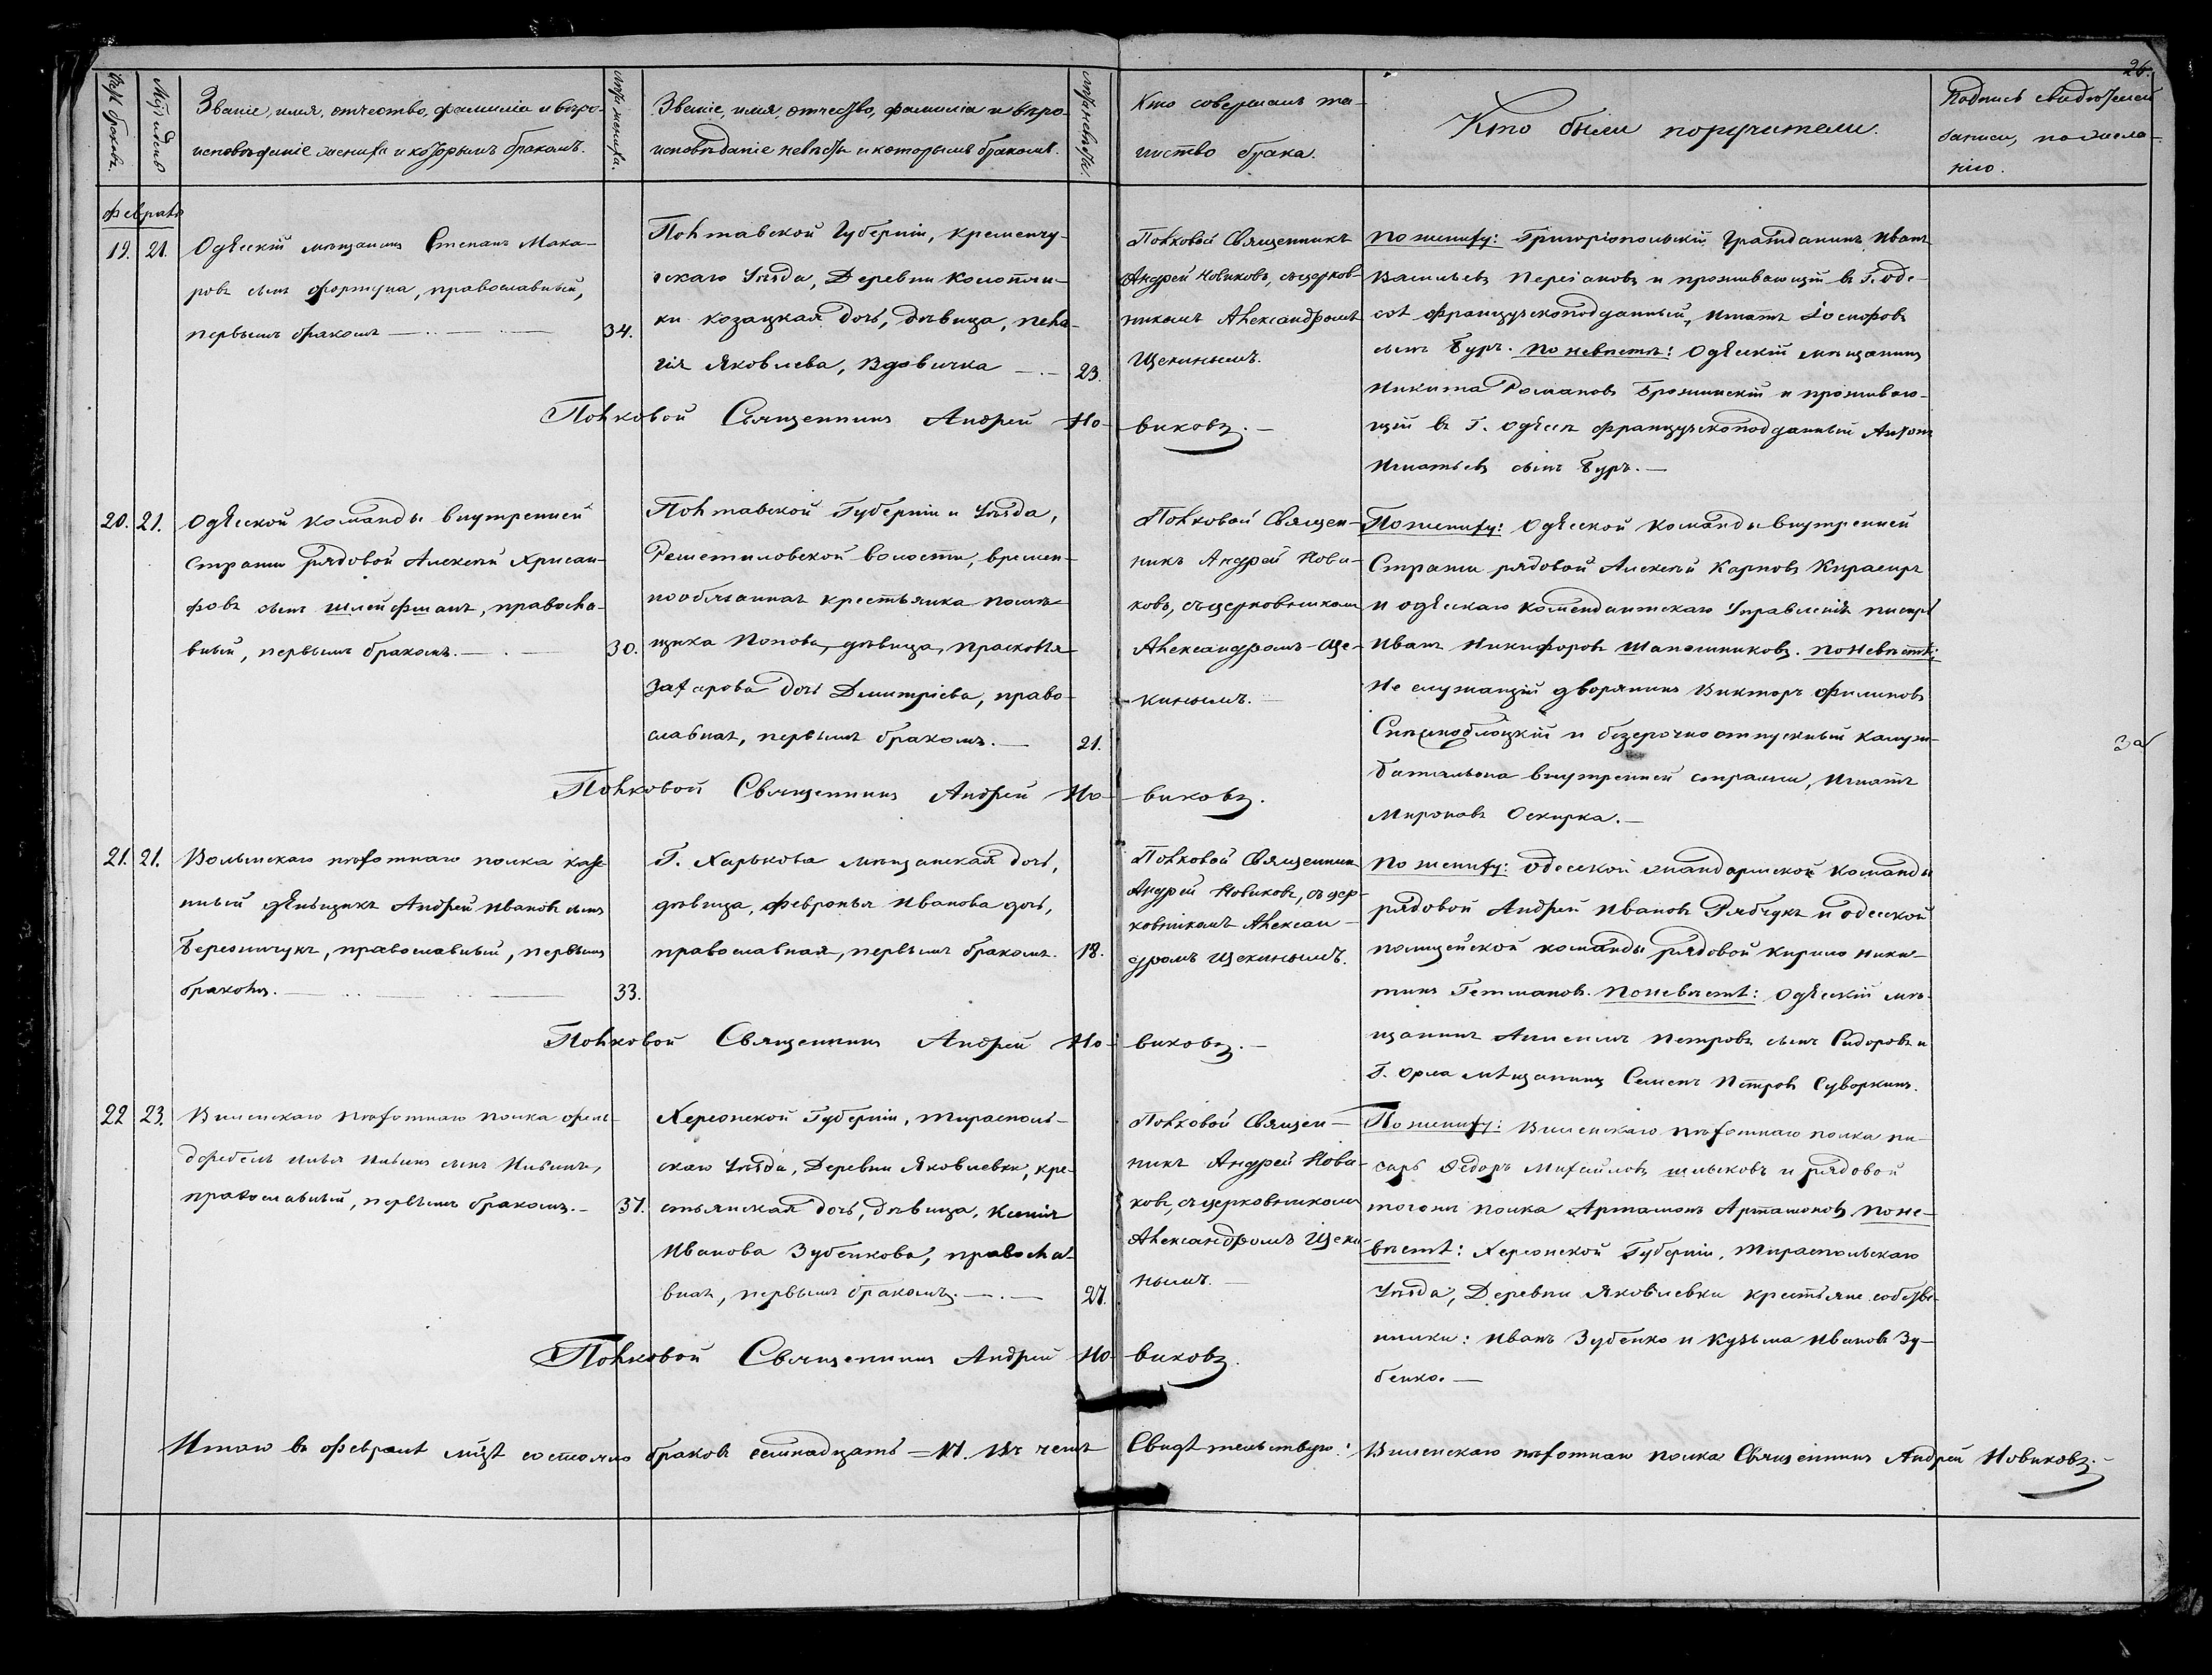 26.
Счетъ браковъ.
Мѣс. и день
Званіе, имя, отчество, фамилія и вѣро-
исповѣданіе жениха и которымъ бракомъ.
Лѣта жениха.
Званіе, имя, отчество, фамилія и вѣро-
исповѣданіе невѣсты и которымъ бракомъ.
Лѣта невѣсты.
Кто совершалъ та-
инство брака.
Кто были поручители.
Подпись свидѣтелей
записи, по жела-
нію.
Февраль
19. 21.
Одесскій мѣщанинъ Степанъ Мака-
ровъ сынъ Фортуна, православный,
первымъ бракомъ
34.
Полтавской Губерніи, Кременчу-
скаго Уѣзда, Деревни
козацкая дочь, дѣвица, Пела-
гія Яковлева, Вдовичка
23.
Полковой Священникъ
Андрей Новиковъ, съ церков-
никомъ Александромъ
Щекинымъ.
По жениху: Григоріопольскій Гражданинъ Иванъ
Васильевъ и проживающій въ Г. Оде-
сѣ французскоподданный, Игнатъ Іосифовъ
сынъ Буръ. По невѣстѣ: Одесскій мѣщанинъ
Никита Романовъ и проживаю-
щій въ Г. Одессѣ французскоподданный Антонъ
Игнатьевъ сынъ Буръ.—
Полковой Священникъ Андрей Но-виковъ.—
20. 21.
Одесской команды внутренней
Стражи рядовой Алексѣй Хрисан-
фовъ сынъ Шлейфманъ, правосла-
вный, первымъ бракомъ.
30.
Полтавской Губерніи и Уѣзда,
Решетиловской волости, времен-
нообязанная крестьянка помѣ-
щика Попова, дѣвица, Прасковія
Захарова дочь Дмитріева, право-
славная, первымъ бракомъ.—
21.
Полковой Священ-
никъ Андрей Нови-
ковъ, съ церковникомъ
Александромъ Ще-
кинымъ.
По жениху: Одесской команды внутренней
Стражи рядовой Алексѣй Карповъ Кирасиръ
и Одесскаго комендантскаго Управленія писарь
Иванъ Никифоровъ Шапошниковъ. По невѣстѣ:
Не служащій дворянинъ Викторъ Филиповъ
и безсрочноотпускный Калуж-
Баталіона внутренней стражи, Игнатъ
Мироновъ Оскирка.—
За
Полковой Священникъ Андрей Но-виковъ.
21. 21.
Волынскаго пѣхотнаго полка казе-
нный деньщикъ Андрей Ивановъ сынъ
Березничукъ, православный, первымъ
бракомъ.
33.
Г. Харькова мѣщанская дочь,
дѣвица, Февронья Иванова дочь,
православная, первымъ бракомъ.
18.
Полковой Священник
Андрей Новиковъ, съ цер-
ковникомъ Алексан-
дромъ Щекинымъ.
По жениху: Одесской жандармской команды
рядовой Андрей Ивановъ Рябчукъ и одесской
полицейской команды рядовой Кирило Ники-
тинъ Гетмановъ. По невѣстѣ: Одесскій мѣ-
щанинъ Анисимъ Петровъ сынъ Сидоровъ и
Г. Орла мѣщанинъ Семенъ Петровъ Суворкинъ.
Полковой Священникъ Андрей Но-виковъ.—
22 23.
Виленскаго пѣхотнаго полка фель-
дфебель Илья Ильинъ сынъ Ильинъ,
православный, первымъ бракомъ.—
37.
Херсонской Губерніи, Тирасполь-
скаго Уѣзда, Деревни Яковлевки, кре-
стьянская дочь, дѣвица, Ксенія
Иванова Зубенкова, правосла-
вная, первымъ бракомъ.
27.
Полковой Священ-
никъ Андрей Нови-
ковъ, съ церковникомъ
Александромъ Щеки-
нымъ.
По жениху: Виленскаго пѣхотнаго полка пи-
сарь Федоръ Михайловъ Шлыковъ и рядовой
тогожъ полка Артамонъ Артамоновъ. По не-
вѣстѣ: Херсонской Губерніи, Тираспольскаго
Уѣзда, Деревни Яковлевки крестьяне собстве-
нники: Иванъ Зубенко и Кузьма Ивановъ Зу-
бенко.—
Полковой Священникъ Андрей Но-виковъ.
Итого въ Февралѣ мѣсяцѣ состояло браковъ семнадцать — 17. Въ чемъ Свидѣтельствую: Виленскаго пѣхотнаго полка Священникъ Андрей Новиковъ.